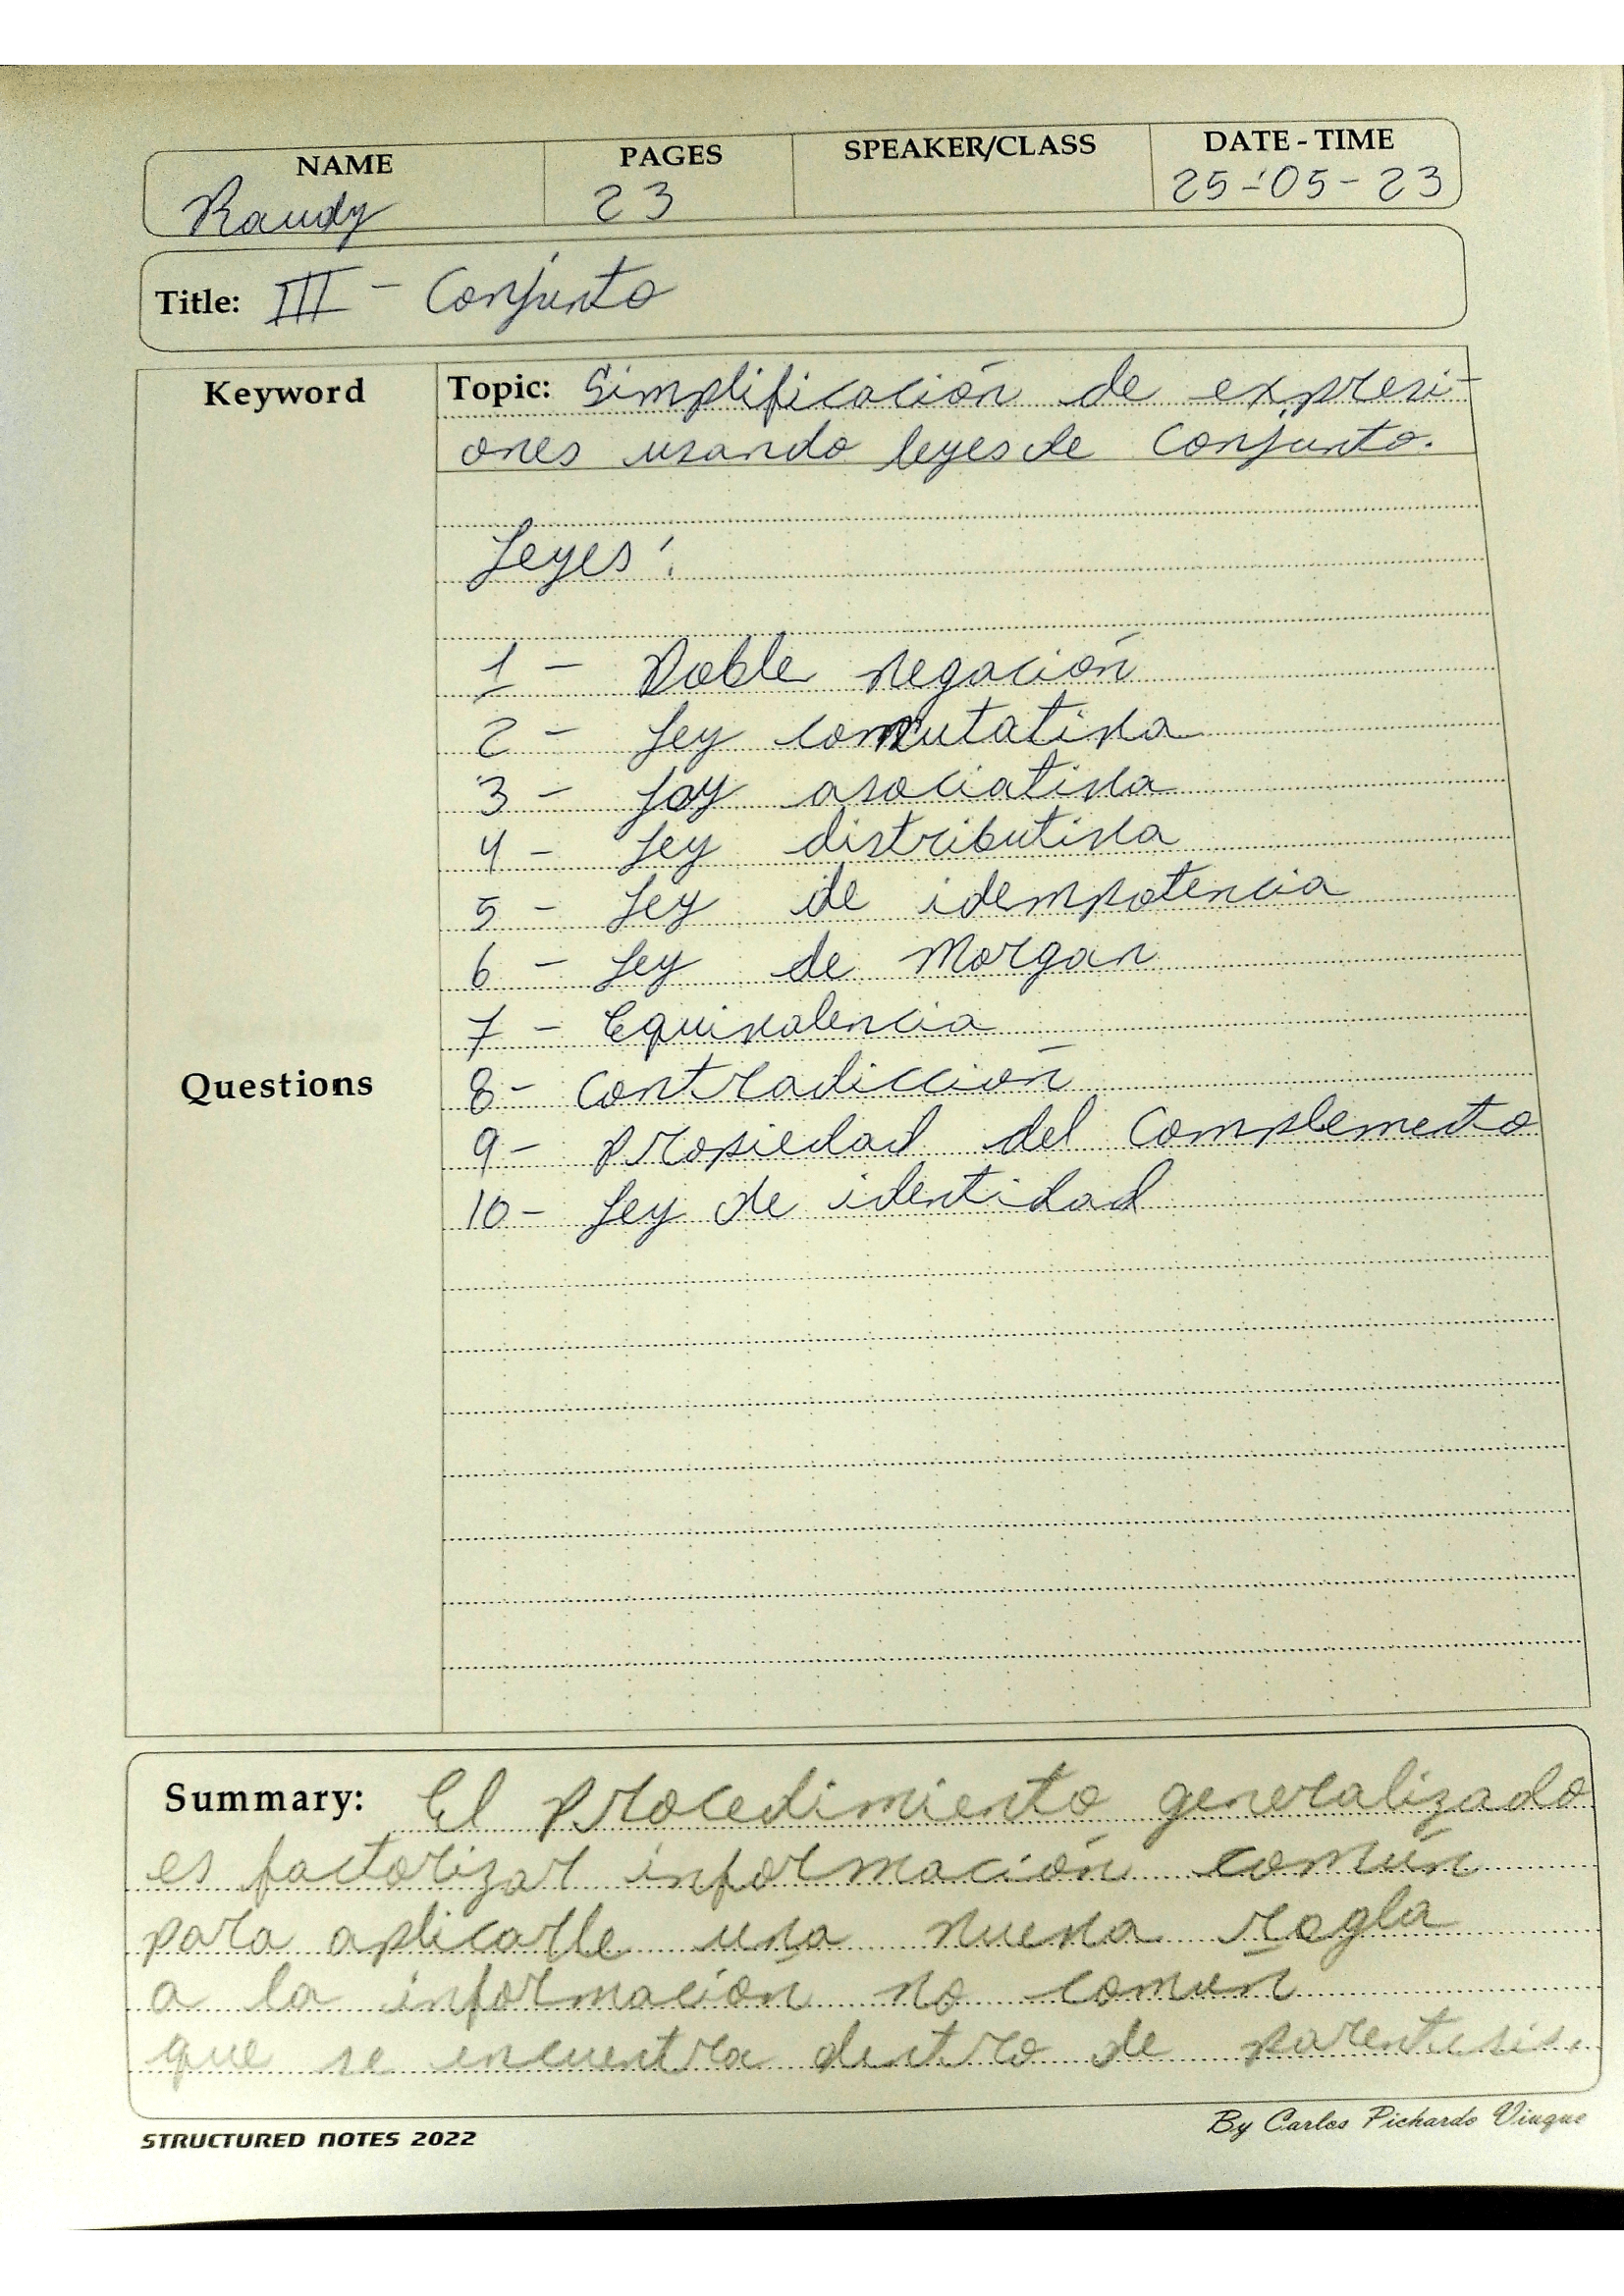 NAME PAGES SPEAKER/CLASS DATE - TIME
Randy 23 25-05-23
Title: III - Conjunto
Keyword
Topic: Simplificación de expresi-
ones usando leyes de Conjunto.
Leyes:
1 - Doble negación
2 - Ley conmutativa
3 - Ley asociativa
4 - Ley distributiva
5 - Ley de idempotencia
6 - Ley de Morgan
7 - Equivalencia
Questions
8 - Contradicción
9 - Propiedad del Complemento
10 - Ley de identidad
Summary: El procedimiento generalizado
es factorizar información común
para aplicarle una nueva regla
a la información no común
que se encuentra dentro de parentesis.
STRUCTURED NOTES 2022
By Carlos Pichardo Viuque